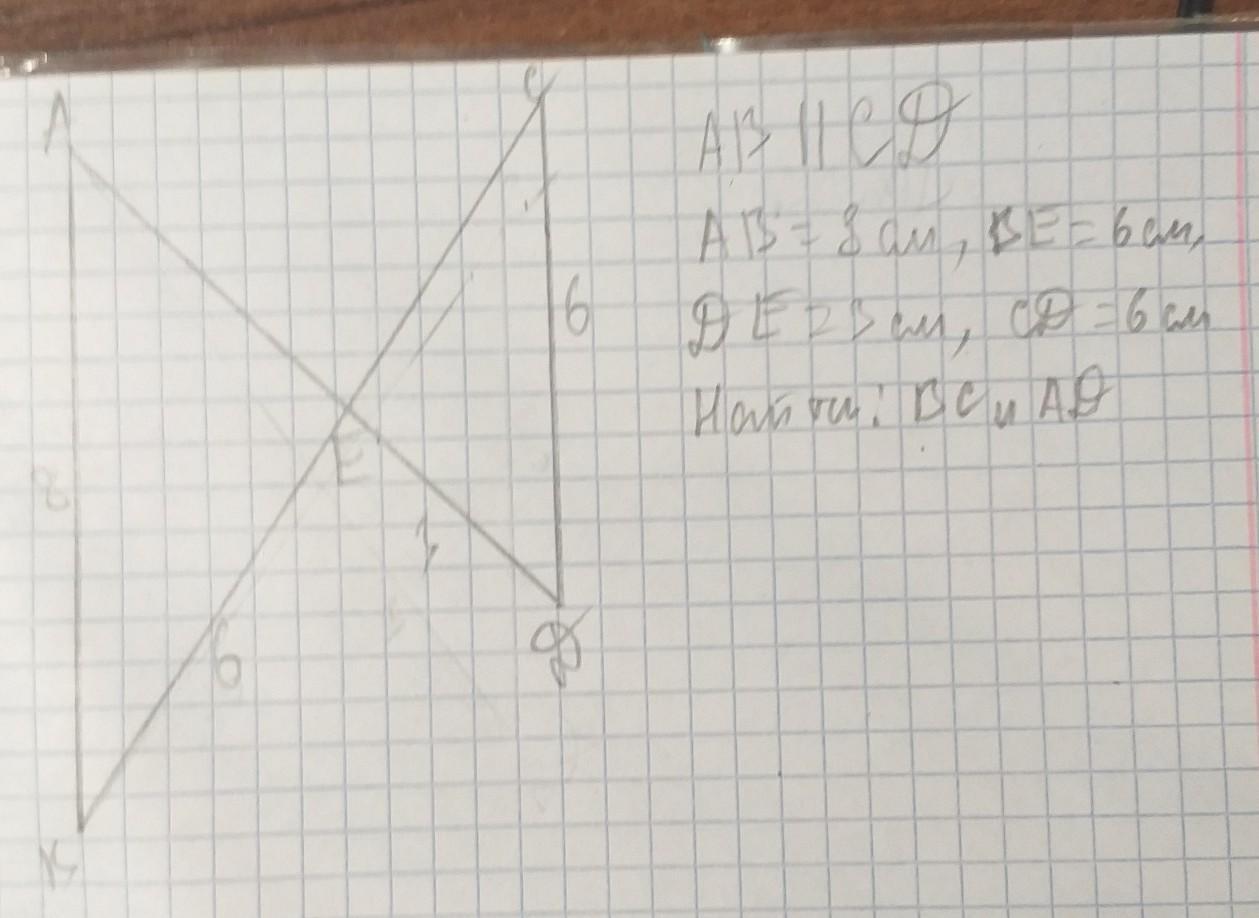 A
C
AB || CD
AB = 8 см, BE = 6 см,
DE = 3 см, CD = 6 см
6
Найти: BC и AD
E
8
6
D
B